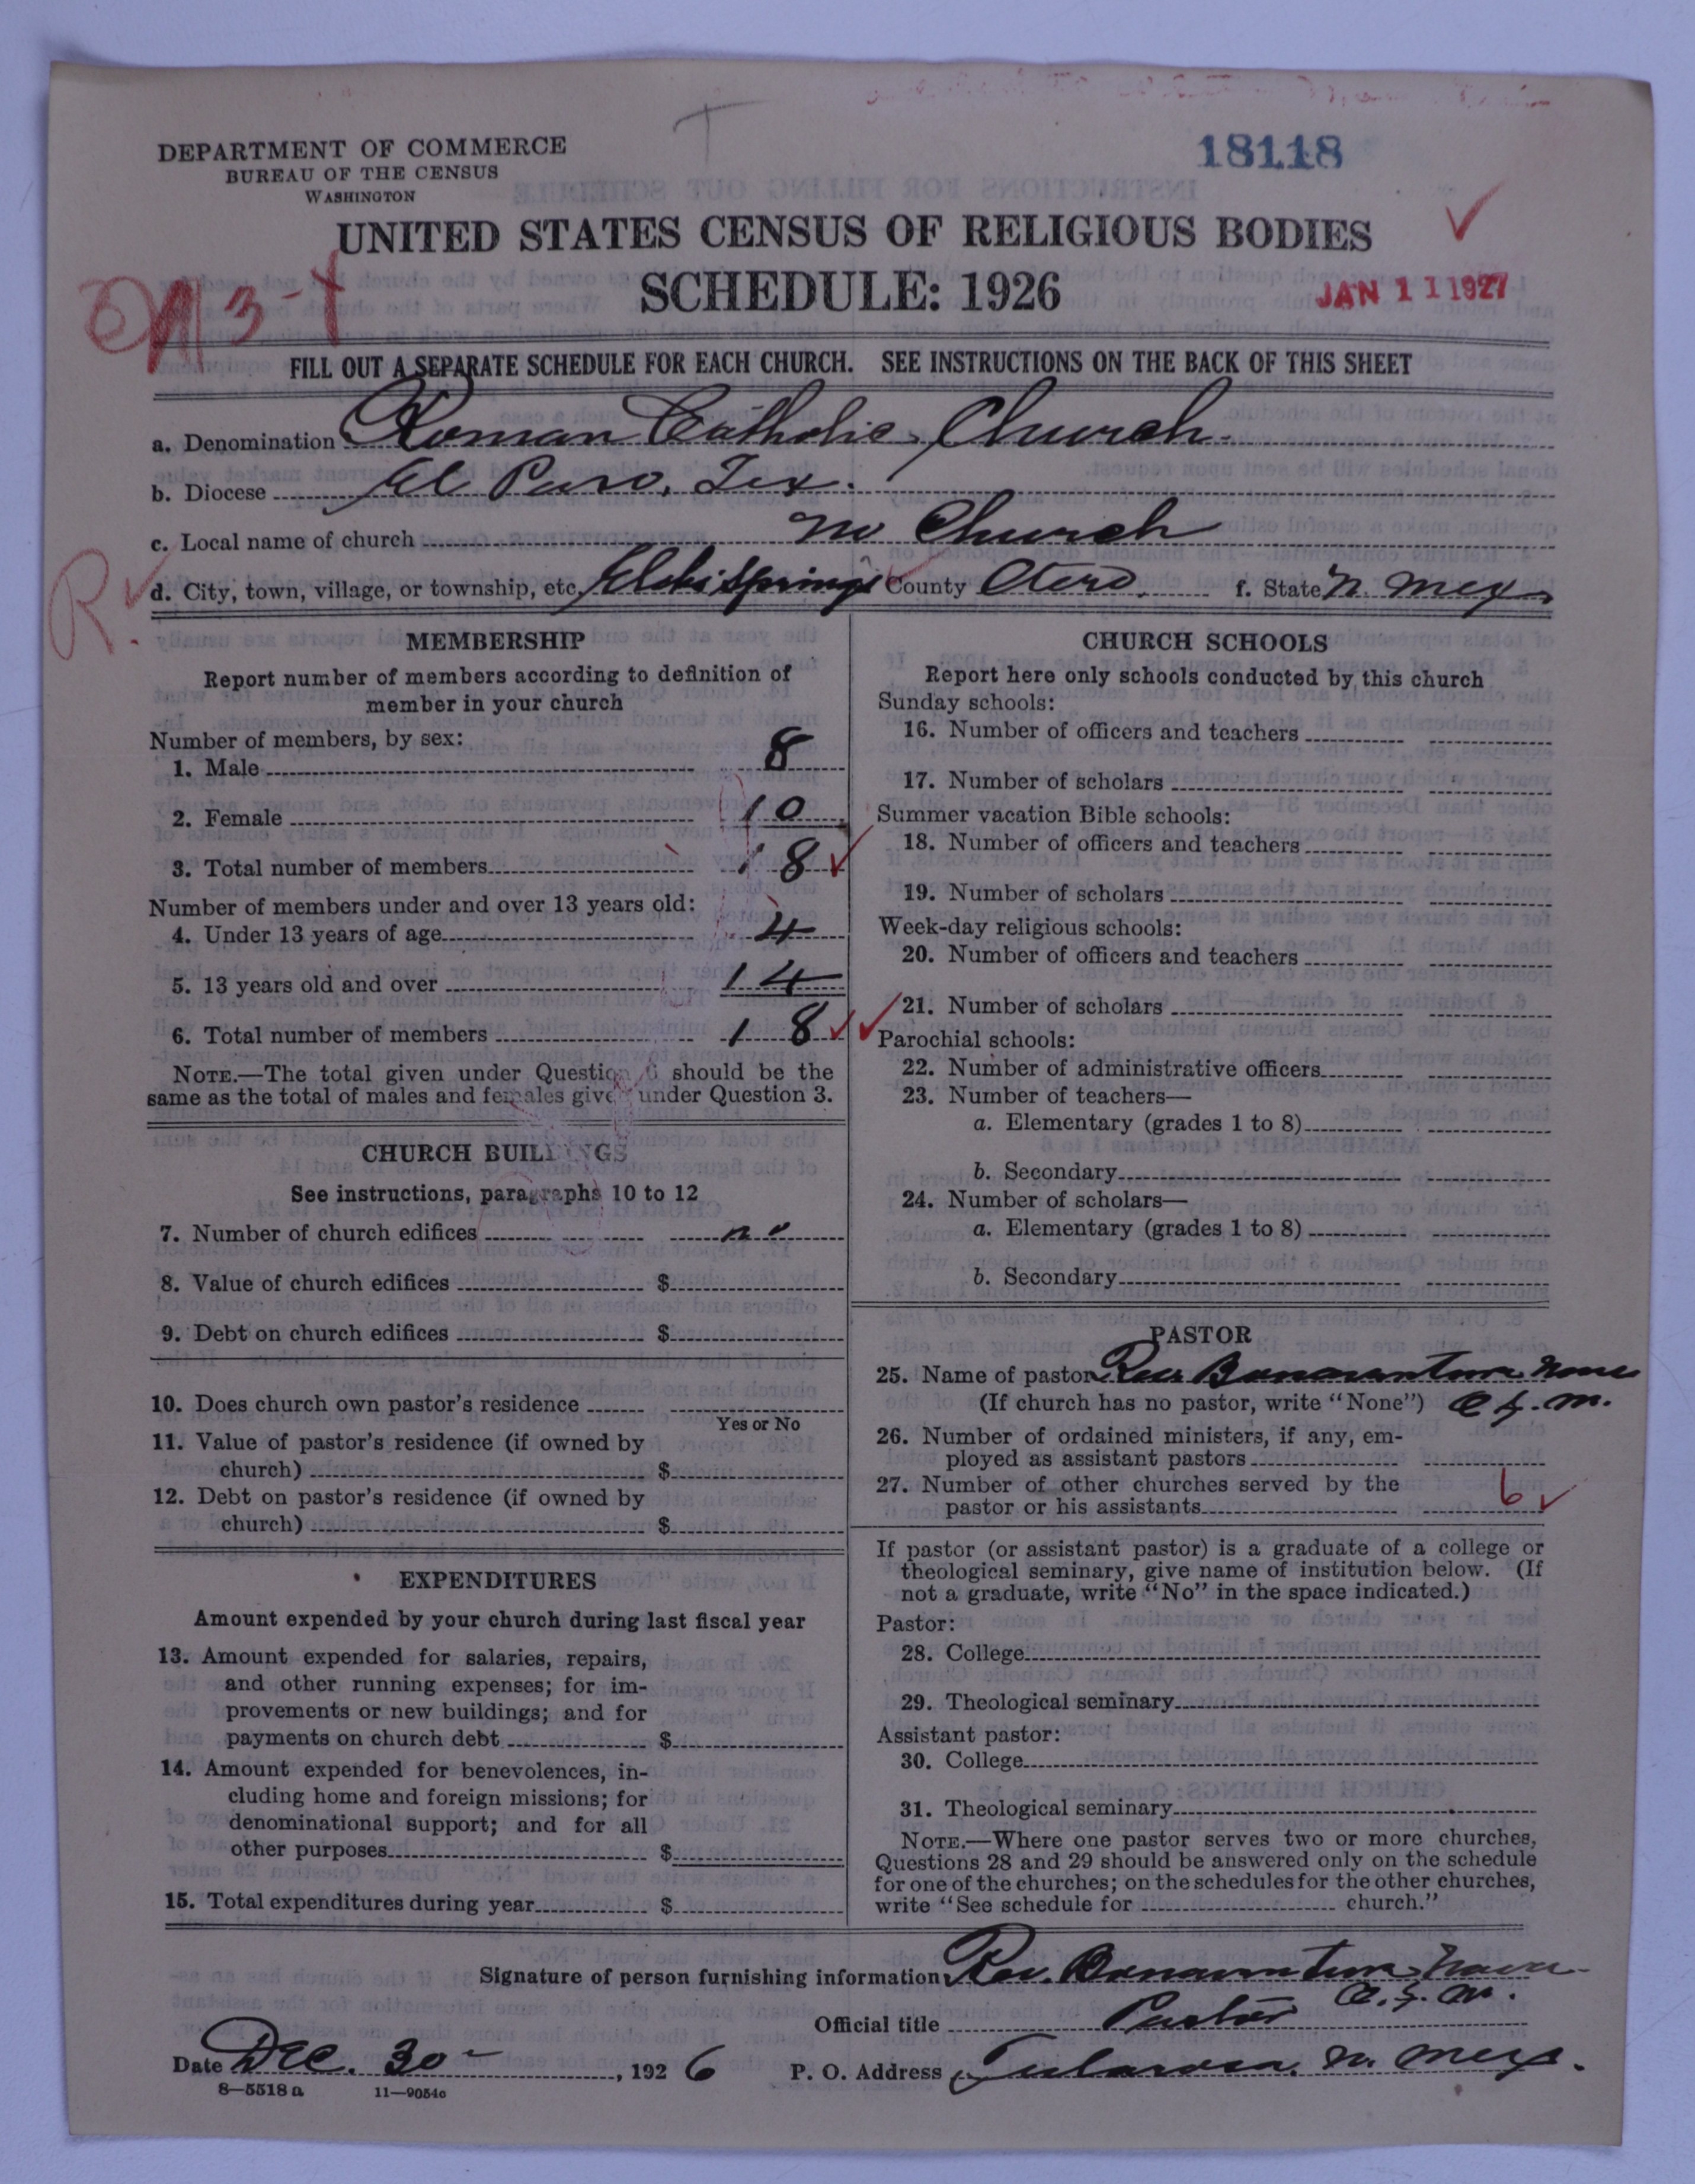 18118
DEPARTMENT OF COMMERCE
BUREAU OF THE CENSUS
WASHINGTON
UNITED STATES CENSUS OF RELIGIOUS BODIES
SCHEDULE: 1926
JAN 11 1927
3-4
FILL OUT A SEPARATE SCHEDULE FOR EACH CHURCH. SEE INSTRUCTIONS ON THE BACK OF THIS SHEET
a. Denomination Roman Catholic Church.
b. Diocese El Paso, Tex.
c. Local name of church no Church
R.
d. City, town, village, or township, etc. Springs County Otero. f. State N. Mex.
MEMBERSHIP
Report number of members according to definition of
member in your church
Number of members, by sex:
1. Male 8
2. Female 10
3. Total number of members 18
Number of members under and over 13 years old:
4. Under 13 years of age 4
5. 13 years old and over 14
6. Total number of members 18
NOTE.—The total given under Question 6 should be the
same as the total of males and females given under Question 3.
CHURCH BUILDINGS
See instructions, paragraphs 10 to 12
7. Number of church edifices no
8. Value of church edifices $
9. Debt on church edifices $
10. Does church own pastor's residence
Yes or No
11. Value of pastor's residence (if owned by
church) $
12. Debt on pastor's residence (if owned by
church) $
EXPENDITURES
Amount expended by your church during last fiscal year
13. Amount expended for salaries, repairs,
and other running expenses; for im-
provements or new buildings; and for
payments on church debt $
14. Amount expended for benevolences, in-
cluding home and foreign missions; for
denominational support; and for all
other purposes $
15. Total expenditures during year $
CHURCH SCHOOLS
Report here only schools conducted by this church
Sunday schools:
16. Number of officers and teachers
17. Number of scholars
Summer vacation Bible schools:
18. Number of officers and teachers
19. Number of scholars
Week-day religious schools:
20. Number of officers and teachers
21. Number of scholars
Parochial schools:
22. Number of administrative officers
23. Number of teachers—
a. Elementary (grades 1 to 8)
b. Secondary
24. Number of scholars—
a. Elementary (grades 1 to 8)
b. Secondary
PASTOR
25. Name of pastor Rev. Bonaventure
(If church has no pastor, write "None") O.F.M.
26. Number of ordained ministers, if any, em-
ployed as assistant pastors
27. Number of other churches served by the
pastor or his assistants 6
If pastor (or assistant pastor) is a graduate of a college or
theological seminary, give name of institution below. (If
not a graduate, write "No" in the space indicated.)
Pastor:
28. College
29. Theological seminary
Assistant pastor:
30. College
31. Theological seminary
NOTE.—Where one pastor serves two or more churches,
Questions 28 and 29 should be answered only on the schedule
for one of the churches; on the schedules for the other churches,
write "See schedule for church."
Signature of person furnishing information Rev. Bonaventure
O.F.M.
Official title Pastor
Date Dec. 30 , 1926 P. O. Address Tularosa, N. Mex.
8—5518 a 11—9054c